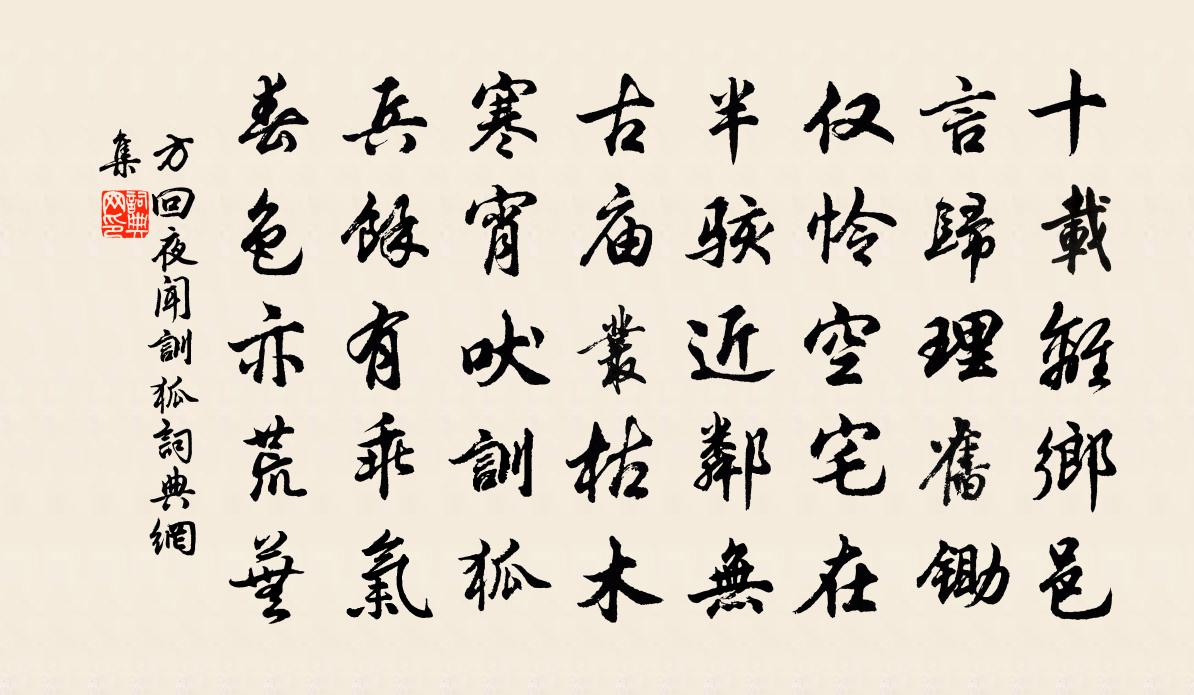 十載離鄉邑
言歸理舊鋤
仅怜空宅在
半駭近鄰無
古庙叢枯木
寒宵吠訓狐
兵餘有乖氣
春色亦荒蕪
方回夜聞訓狐詞典網
集
詞典网印